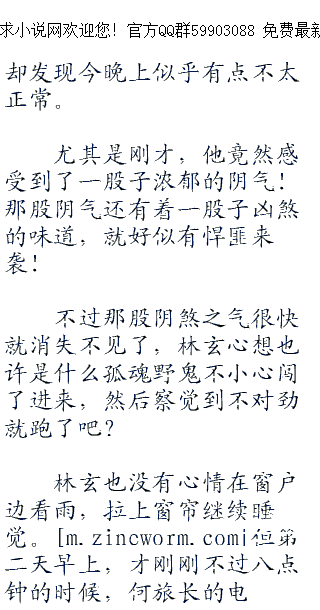 求小说网欢迎您！官方QQ群59903088 免费最新
却发现今晚上似乎有点不太
正常。
尤其是刚才，他竟然感
受到了一股子浓郁的阴气！
那股阴气还有着一股子凶煞
的味道，就好似有悍匪来
袭！
不过那股阴煞之气很快
就消失不见了，林玄心想也
许是什么孤魂野鬼不小心闯
了进来，然后察觉到不对劲
就跑了吧？
林玄也没有心情在窗户
边看雨，拉上窗帘继续睡
觉。[m.zincworm.com]但第
二天早上，才刚刚不过八点
钟的时候，何旅长的电